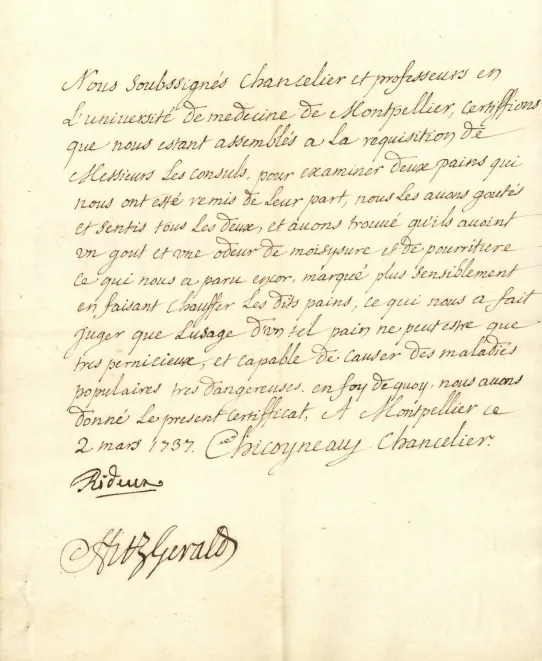 Nous soubssignés Chancelier et professeurs en
L'université de medecine de Montpellier, certiffions
que nous estant assemblés a La requisition de
Messieurs Les consuls, pour examiner deux pains qui
nous ont esté remis de Leur part, nous Les avons goutés
et sentis tous Les deux, et avons trouvé qu'ils avoint
un gout et une odeur de moisysure et de pourritiere
ce qui nous a paru encor, marqué plus sensiblement
en faisant Chauffer Les dits pains, ce qui nous a fait
juger que L'usage d'un tel pain ne peut estre que
tres pernicieux, et capable de causer des maladies
populaires tres dangereuses. en foy de quoy, nous avons
donné Le present Certifficat, A Montpellier ce
2 mars 1737. Chicoyneau Chancelier.
Rideux
FitzGerald